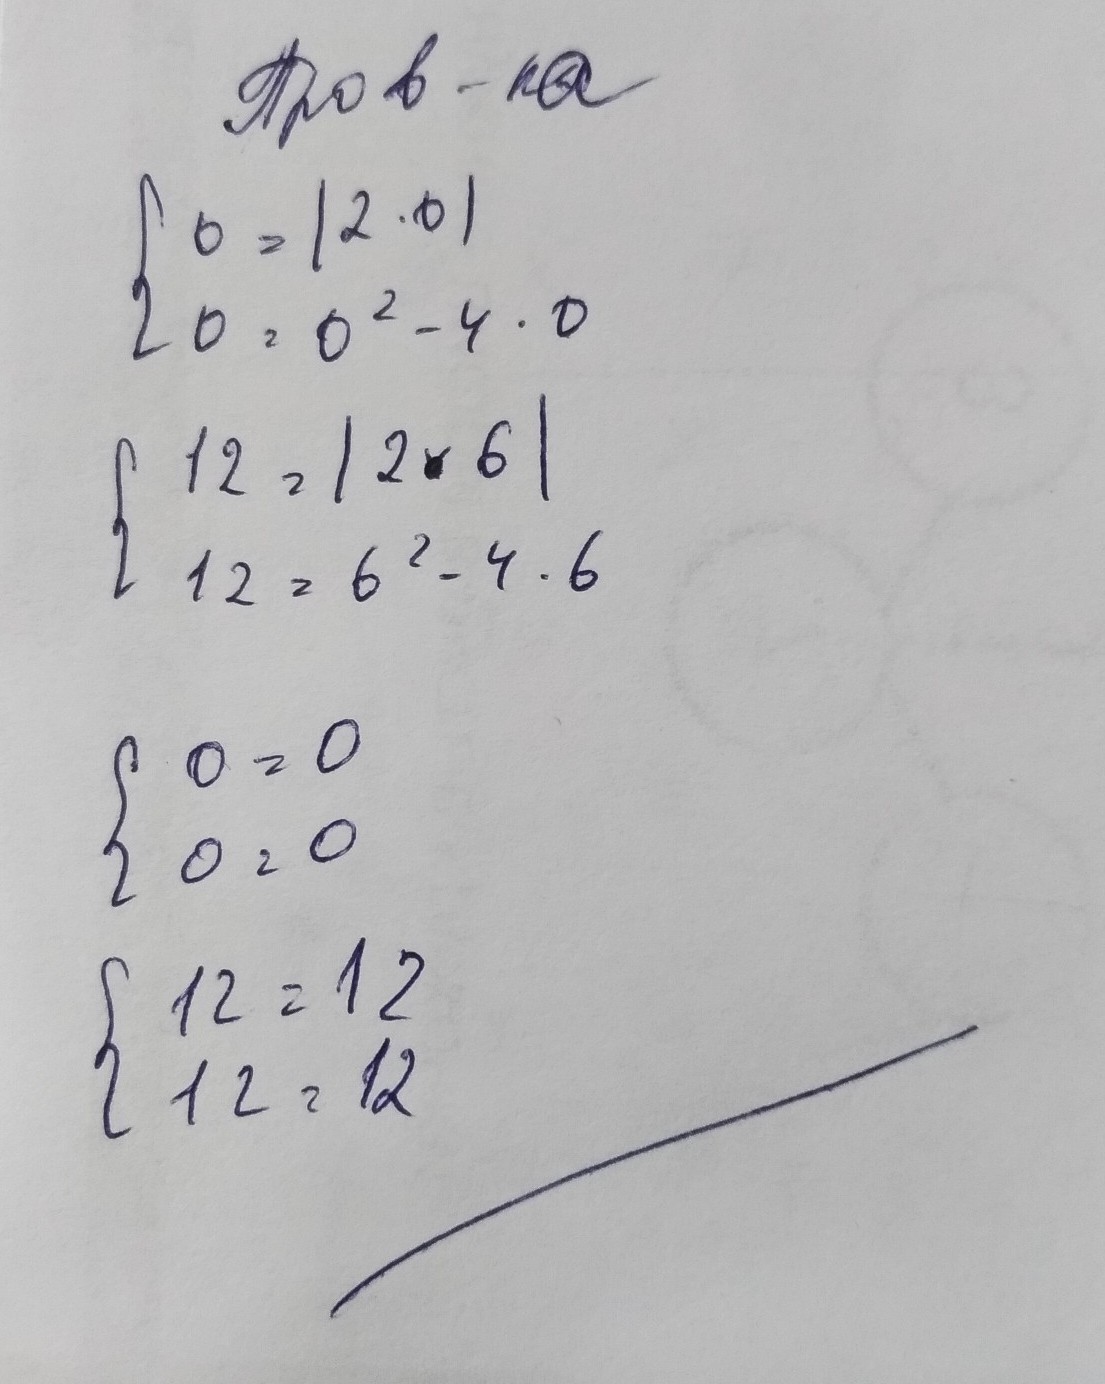 Пров-ка
0 = |2·0|
0 = 0² - 4·0
12 = |2·6|
12 = 6² - 4·6
0 = 0
0 = 0
12 = 12
12 = 12